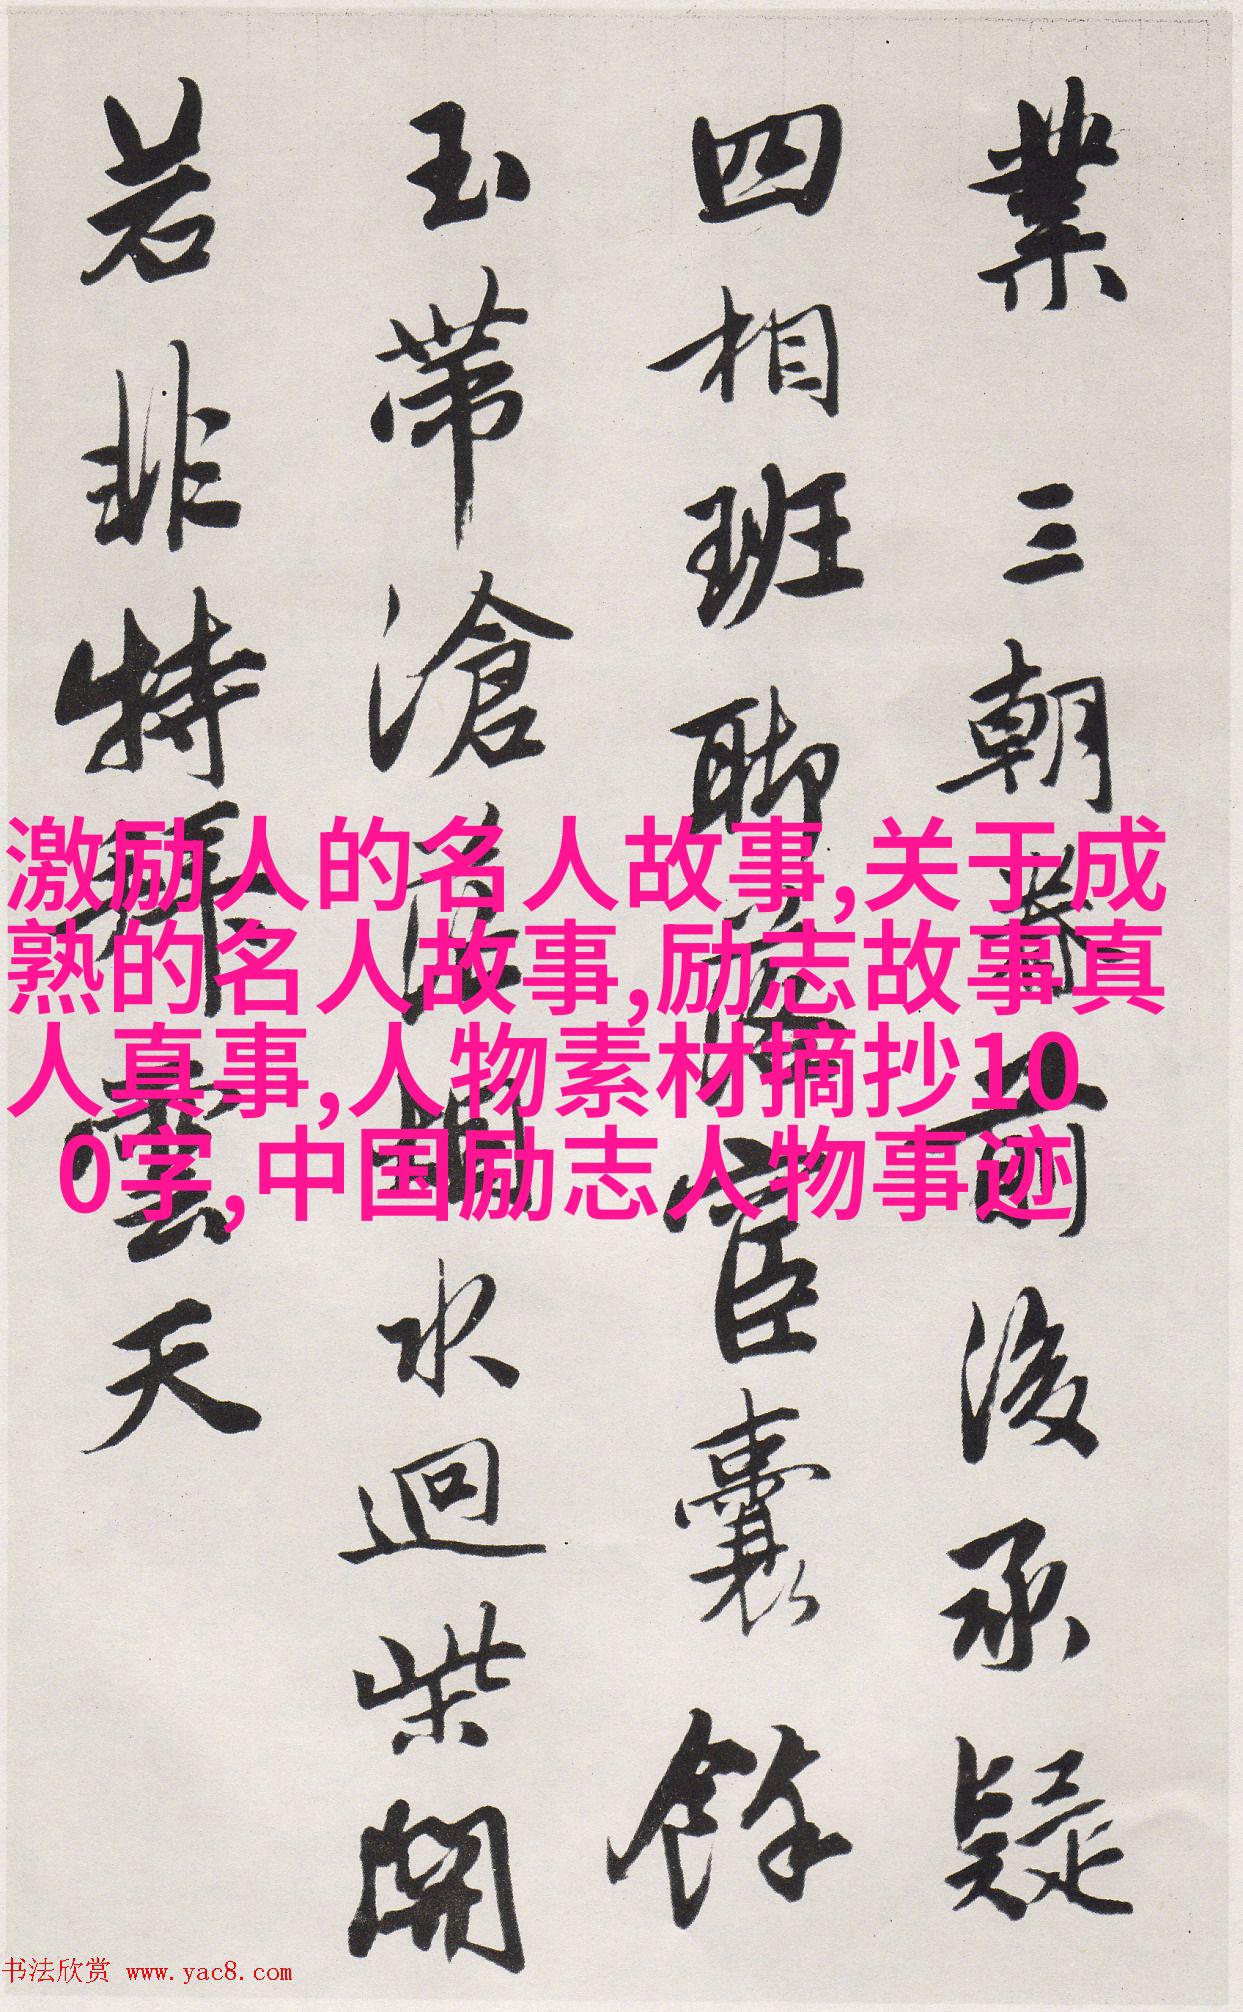 業 三朝耆前後承疑
四相班聯蕊宦囊餘
玉帶滄浪獨水迴柴開
若非特拜雲天
激励人的名人故事,关于成
熟的名人故事,励志故事真
人真事,人物素材摘抄10
0字,中国励志人物事迹
书法欣赏 www.yac8.com